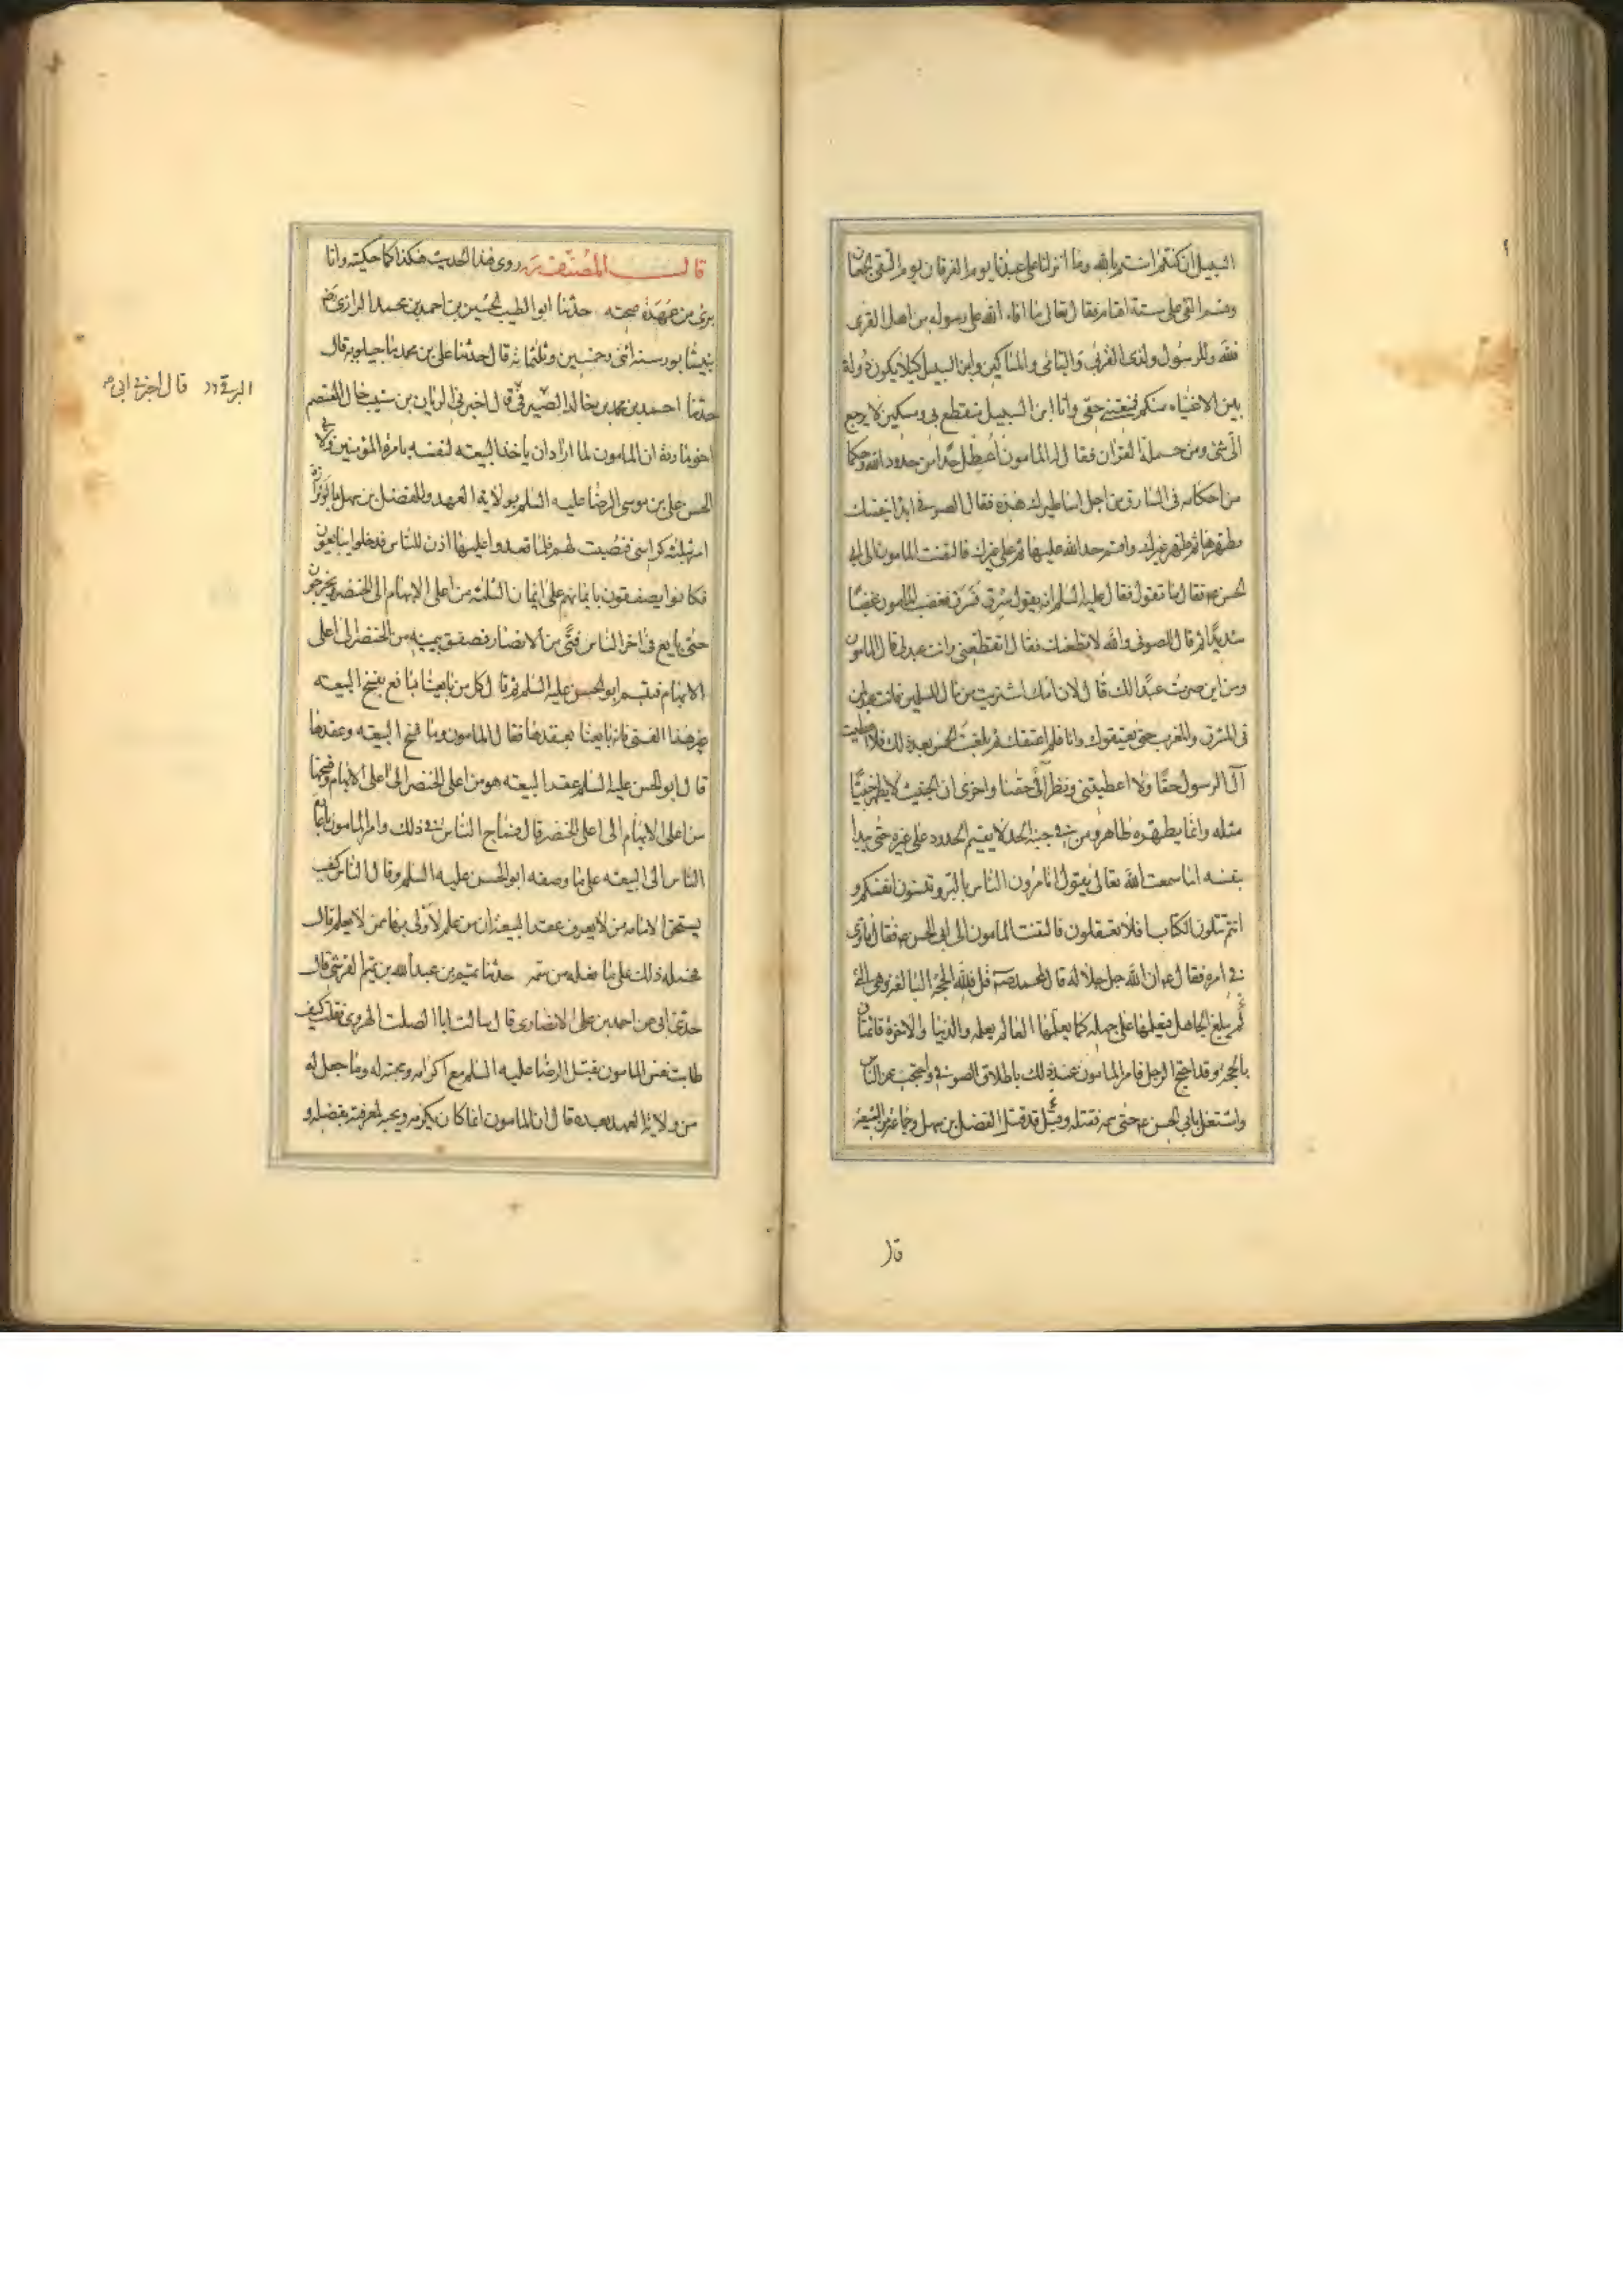 السبيل ان كنتم امنتم بالله وما انزلنا على عبدنا يوم الفرقان يوم التقى الجمعان
وقسم الفئ على ستة اقسام فقال تعالى ما افاء الله على رسوله من اهل القرى
فلله وللرسول ولذى القربى واليتامى والمساكين وابن السبيل كيلا يكون دولة
بين الاغنياء منكم فمنعتنى حقى وانا ابن السبيل منقطع بى ومسكين لا يرجع
الى شئ ومن حملة القران فقال له المامون اعطل حدا من حدود الله وحكما
من احكامه فى السارق من اجل اساطيرك هذه فقال الصوفى ابدا بنفسك
فطهرها ثم طهر غيرك واقم حد الله عليها ثم على غيرك فالتفت المامون الى ابى
الحسن ع فقال ما تقول فقال عليه السلم انه يقول سرق فسرق فغضب المامون غضبا
شديدا ثم قال للصوفى والله لاقطعنك فقال اتقطعنى وانت عبد لى قال المامون
ومن اين صرت عبدا لك قال لان امك اشتريت من مال المسلمين فانت عبد لمن
فى المشرق والمغرب حتى يعتقوك وانا فلم اعتقك ثم بلعت الخمس بعد ذلك فلا اعطيت
آل الرسول حقا ولا اعطيتنى ونظرائى حقنا واخرى ان الخبيث لا يطهر خبيثا
مثله وانما يطهره طاهر ومن فى جنبه الحد لا يقيم الحدود على غيره حتى يبدا
بنفسه اما سمعت الله تعالى يقول اتامرون الناس بالبر وتنسون انفسكم و
انتم تتلون الكتاب افلا تعقلون فالتفت المامون الى ابى الحسن ع فقال ما ترى
فى امره فقال ع ان الله جل جلاله قال لمحمد ص قل فلله الحجة البالغة وهى التى
لم يبلغ الجاهل فيعلمها على جهله كما يعلمها العالم بعلمه والدنيا والاخرة قائمتان
بالحجة وقد احتج الرجل فامر المامون عند ذلك باطلاق الصوفى واحتجب عن الناس
واشتغل بابى الحسن ع حتى سمه فقتله وقد قتل الفضل بن سهل وجماعة من الشيعة
قال
قال المصنف ره روى هذا الحديث هكذا كما حكيته وانا
برئ من عهدة صحته حدثنا ابو الطيب الحسين بن احمد بن محمد الرازى رض
بنيشابور سنة اثنى وخمسين وثلثمائة قال حدثنا على بن محمد ماجيلويه قال
حدثنا احمد بن محمد بن خالد الصيرفى قال اخبرنى الريان بن شبيب خال المعتصم
البرقى قال اخبرنى ابى ص
اخو ماردة ان المامون لما اراد ان ياخذ البيعة لنفسه بامرة المؤمنين ولابى
الحسن على بن موسى الرضا عليه السلم بولاية العهد وللفضل بن سهل بالوزارة
امر بثلثة كراسى فنصبت لهم فلما قعدوا عليها اذن للناس فدخلوا يبايعون
فكانوا يصفقون بايمانهم على ايمان الثلثة من اعلى الابهام الى الخنصر ويخرجون
حتى بايع فى اخر الناس فتى من الانصار فصفق بيمينه من الخنصر الى اعلى
الابهام فتبسم ابو الحسن عليه السلم ثم قال كل من بايعنا بايع بفسخ البيعة
غير هذا الفتى فانه بايعنا بعقدها فقال المامون وما فسخ البيعة وعقدها
قال ابو الحسن عليه السلم عقد البيعة هو من اعلى الخنصر الى اعلى الابهام وفسخها
من اعلى الابهام الى اعلى الخنصر قال فماج الناس فى ذلك وامر المامون باعادة
الناس الى البيعة على ما وصفه ابو الحسن عليه السلم وقال الناس كيف
يستحق الامامة من لا يعرف عقد البيعة ان من علم لاولى بها ممن لا يعلم قال
فحمله ذلك على ما فعله من سمه حدثنا تميم بن عبد الله بن تميم القرشى قال
حدثنى ابى عن احمد بن على الانصارى قال سالت ابا الصلت الهروى فقلت كيف
طابت نفس المامون بقتل الرضا عليه السلم مع اكرامه ومحبته له وما جعل له
من ولاية العهد بعده قال ان المامون انما كان يكرمه ويحبه لمعرفته بفضله و